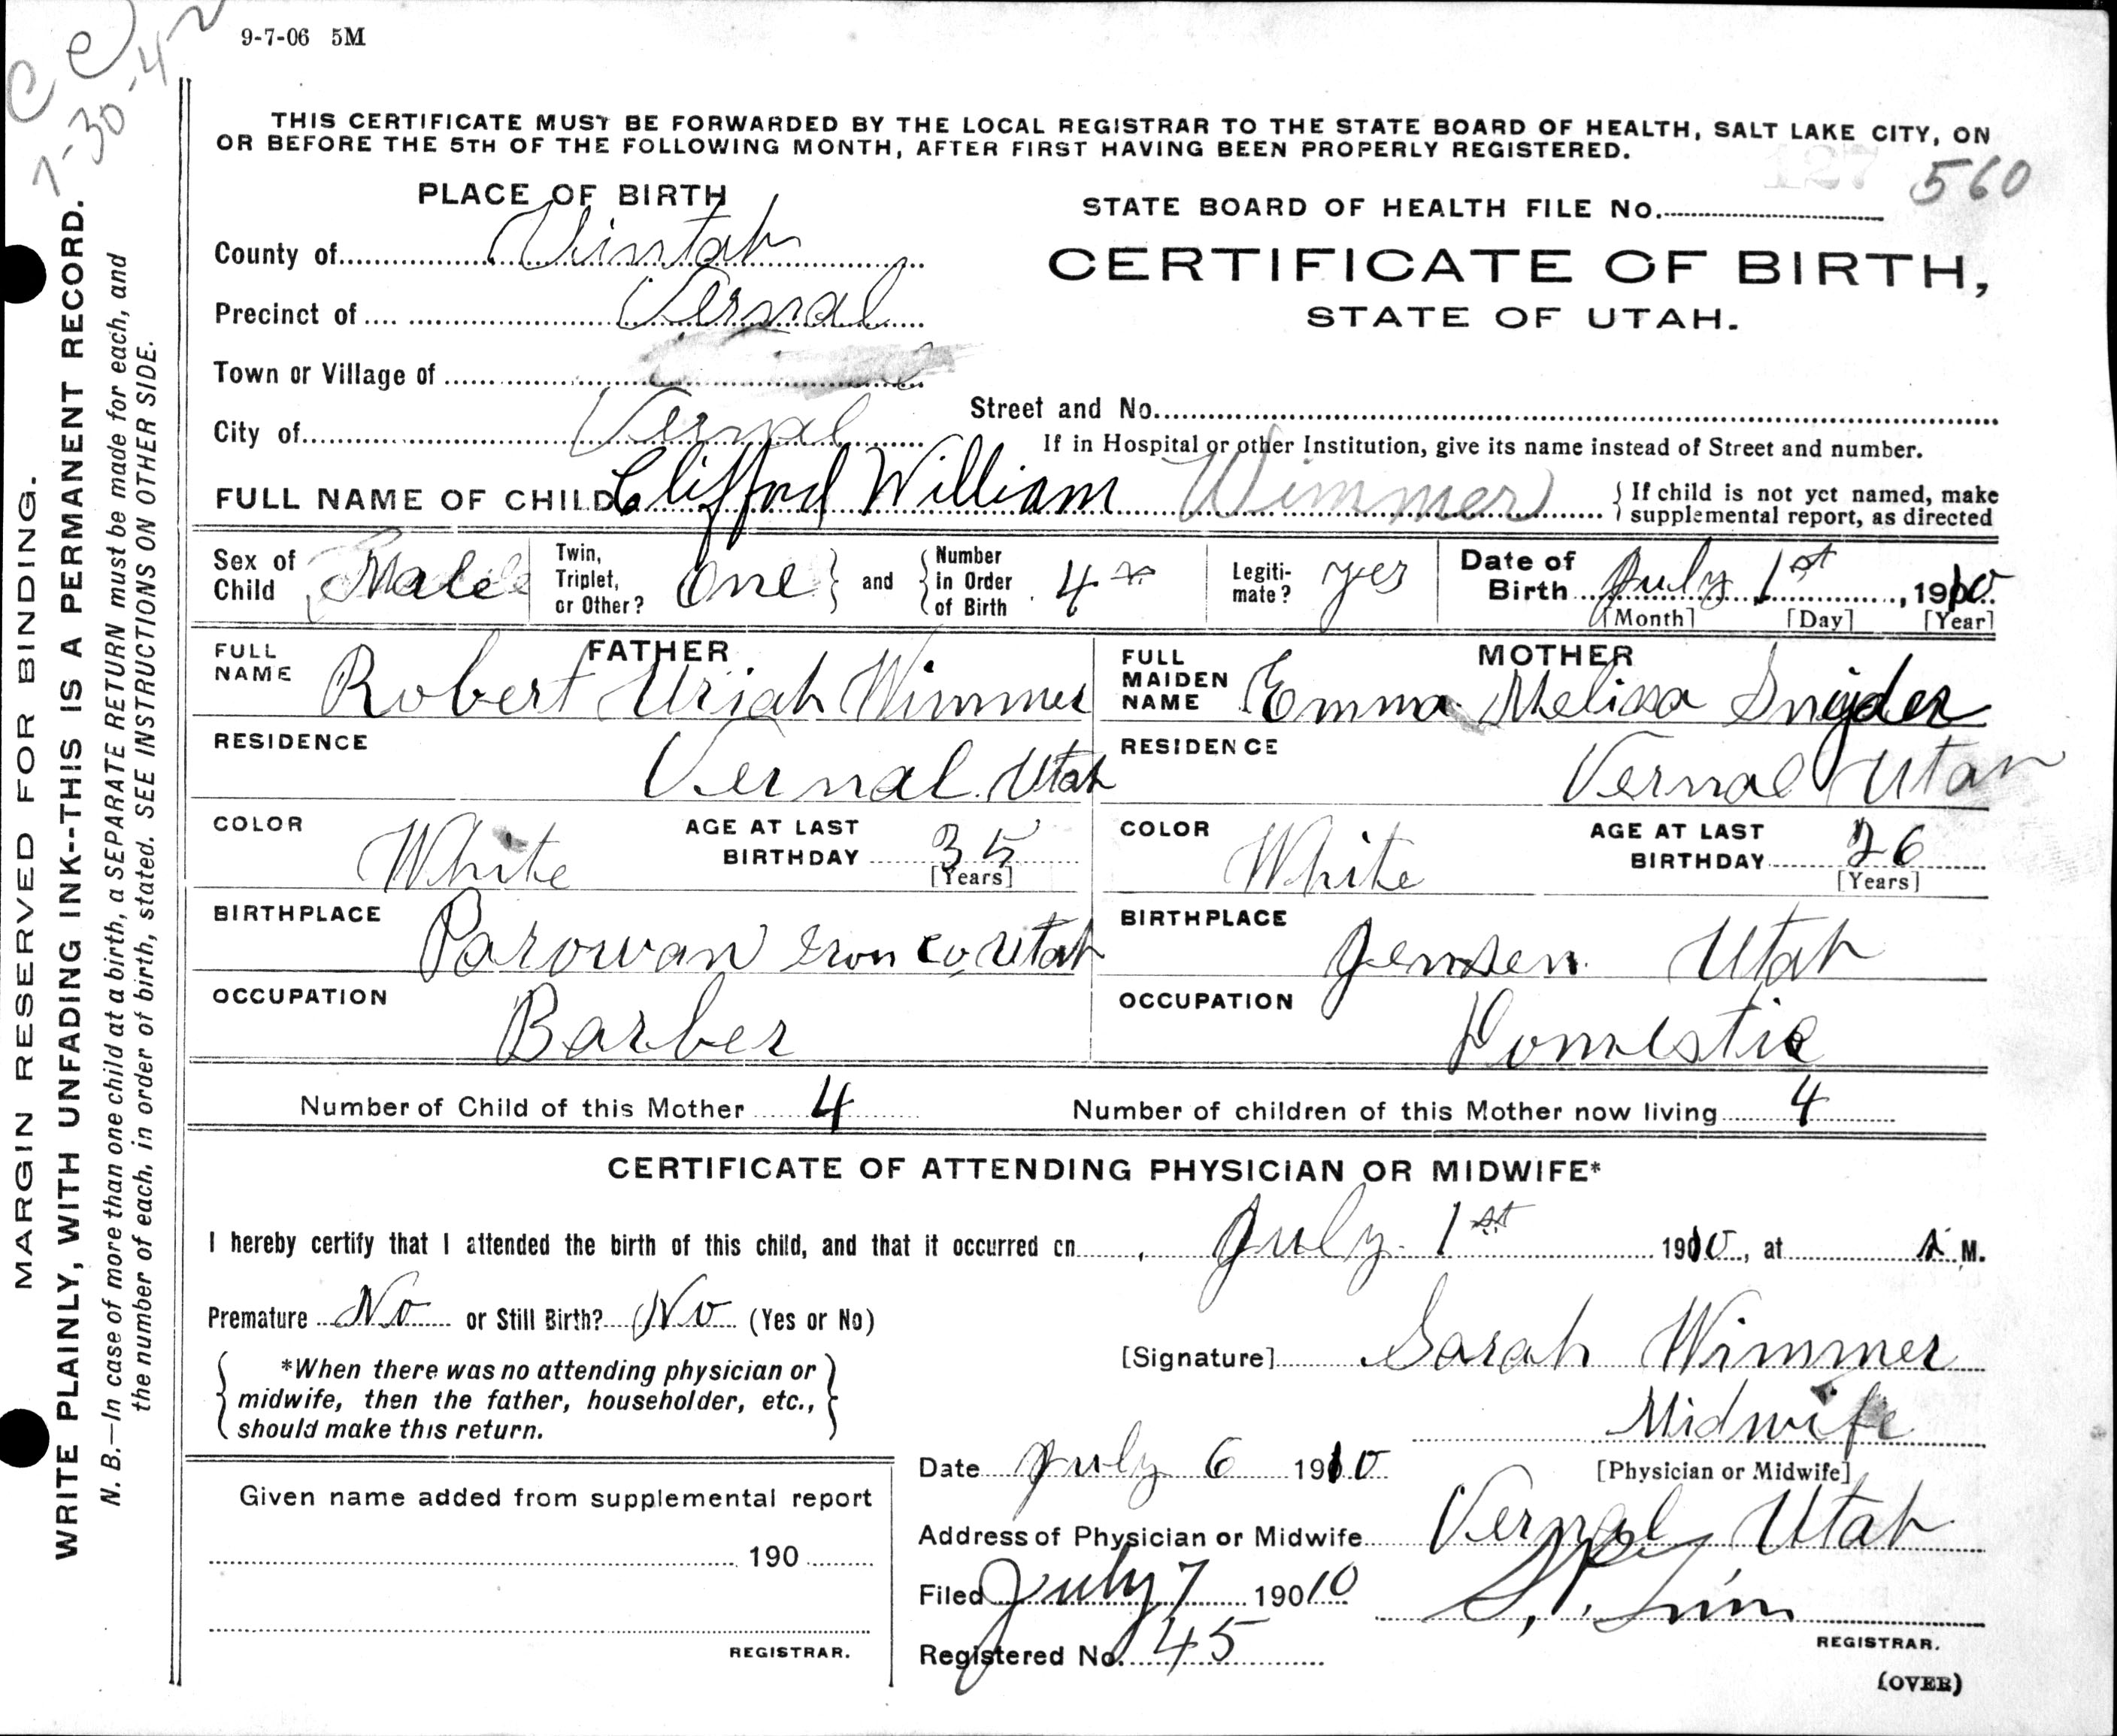 9-7-06 5M
C C
7-30-42
THIS CERTIFICATE MUST BE FORWARDED BY THE LOCAL REGISTRAR TO THE STATE BOARD OF HEALTH, SALT LAKE CITY, ON
OR BEFORE THE 5TH OF THE FOLLOWING MONTH, AFTER FIRST HAVING BEEN PROPERLY REGISTERED.
127 560
STATE BOARD OF HEALTH FILE No.
CERTIFICATE OF BIRTH,
STATE OF UTAH.
PLACE OF BIRTH
County of Uintah
Precinct of Vernal
Town or Village of
City of Vernal
Street and No.
If in Hospital or other Institution, give its name instead of Street and number.
FULL NAME OF CHILD Clifford William Wimmer { If child is not yet named, make
supplemental report, as directed
Sex of Child Male
Twin, Triplet, or Other? One } and { Number in Order of Birth 4
Legiti-mate? yes
Date of Birth July 1st, 1910
[Month] [Day] [Year]
FATHER
FULL NAME Robert Uriah Wimmer
RESIDENCE Vernal Utah
COLOR White AGE AT LAST BIRTHDAY 35 [Years]
BIRTHPLACE Parowan Iron Co, Utah
OCCUPATION Barber
MOTHER
FULL MAIDEN NAME Emma Melissa Snyder
RESIDENCE Vernal Utah
COLOR White AGE AT LAST BIRTHDAY 26 [Years]
BIRTHPLACE Jensen Utah
OCCUPATION Domestic
Number of Child of this Mother 4 Number of children of this Mother now living 4
CERTIFICATE OF ATTENDING PHYSICIAN OR MIDWIFE*
I hereby certify that I attended the birth of this child, and that it occurred on July 1st 1910, at M.
Premature No or Still Birth? No (Yes or No)
{ *When there was no attending physician or
midwife, then the father, householder, etc.,
should make this return. }
[Signature] Sarah Wimmer
Midwife
[Physician or Midwife]
Date July 6 1910
Address of Physician or Midwife Vernal Utah
Filed July 7 19010
REGISTRAR.
Registered No. 45
(OVER)
Given name added from supplemental report
190
REGISTRAR.
MARGIN RESERVED FOR BINDING.
WRITE PLAINLY, WITH UNFADING INK--THIS IS A PERMANENT RECORD.
N. B.—In case of more than one child at a birth, a SEPARATE RETURN must be made for each, and
the number of each, in order of birth, stated. SEE INSTRUCTIONS ON OTHER SIDE.